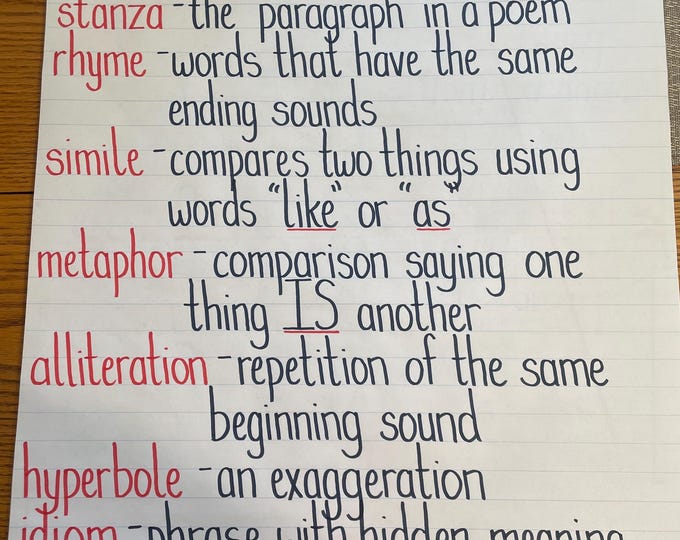 stanza - the paragraph in a poem
rhyme - words that have the same
ending sounds
simile - compares two things using
words "like" or "as"
metaphor - comparison saying one
thing IS another
alliteration - repetition of the same
beginning sound
hyperbole - an exaggeration
idiom - phrase with hidden meaning